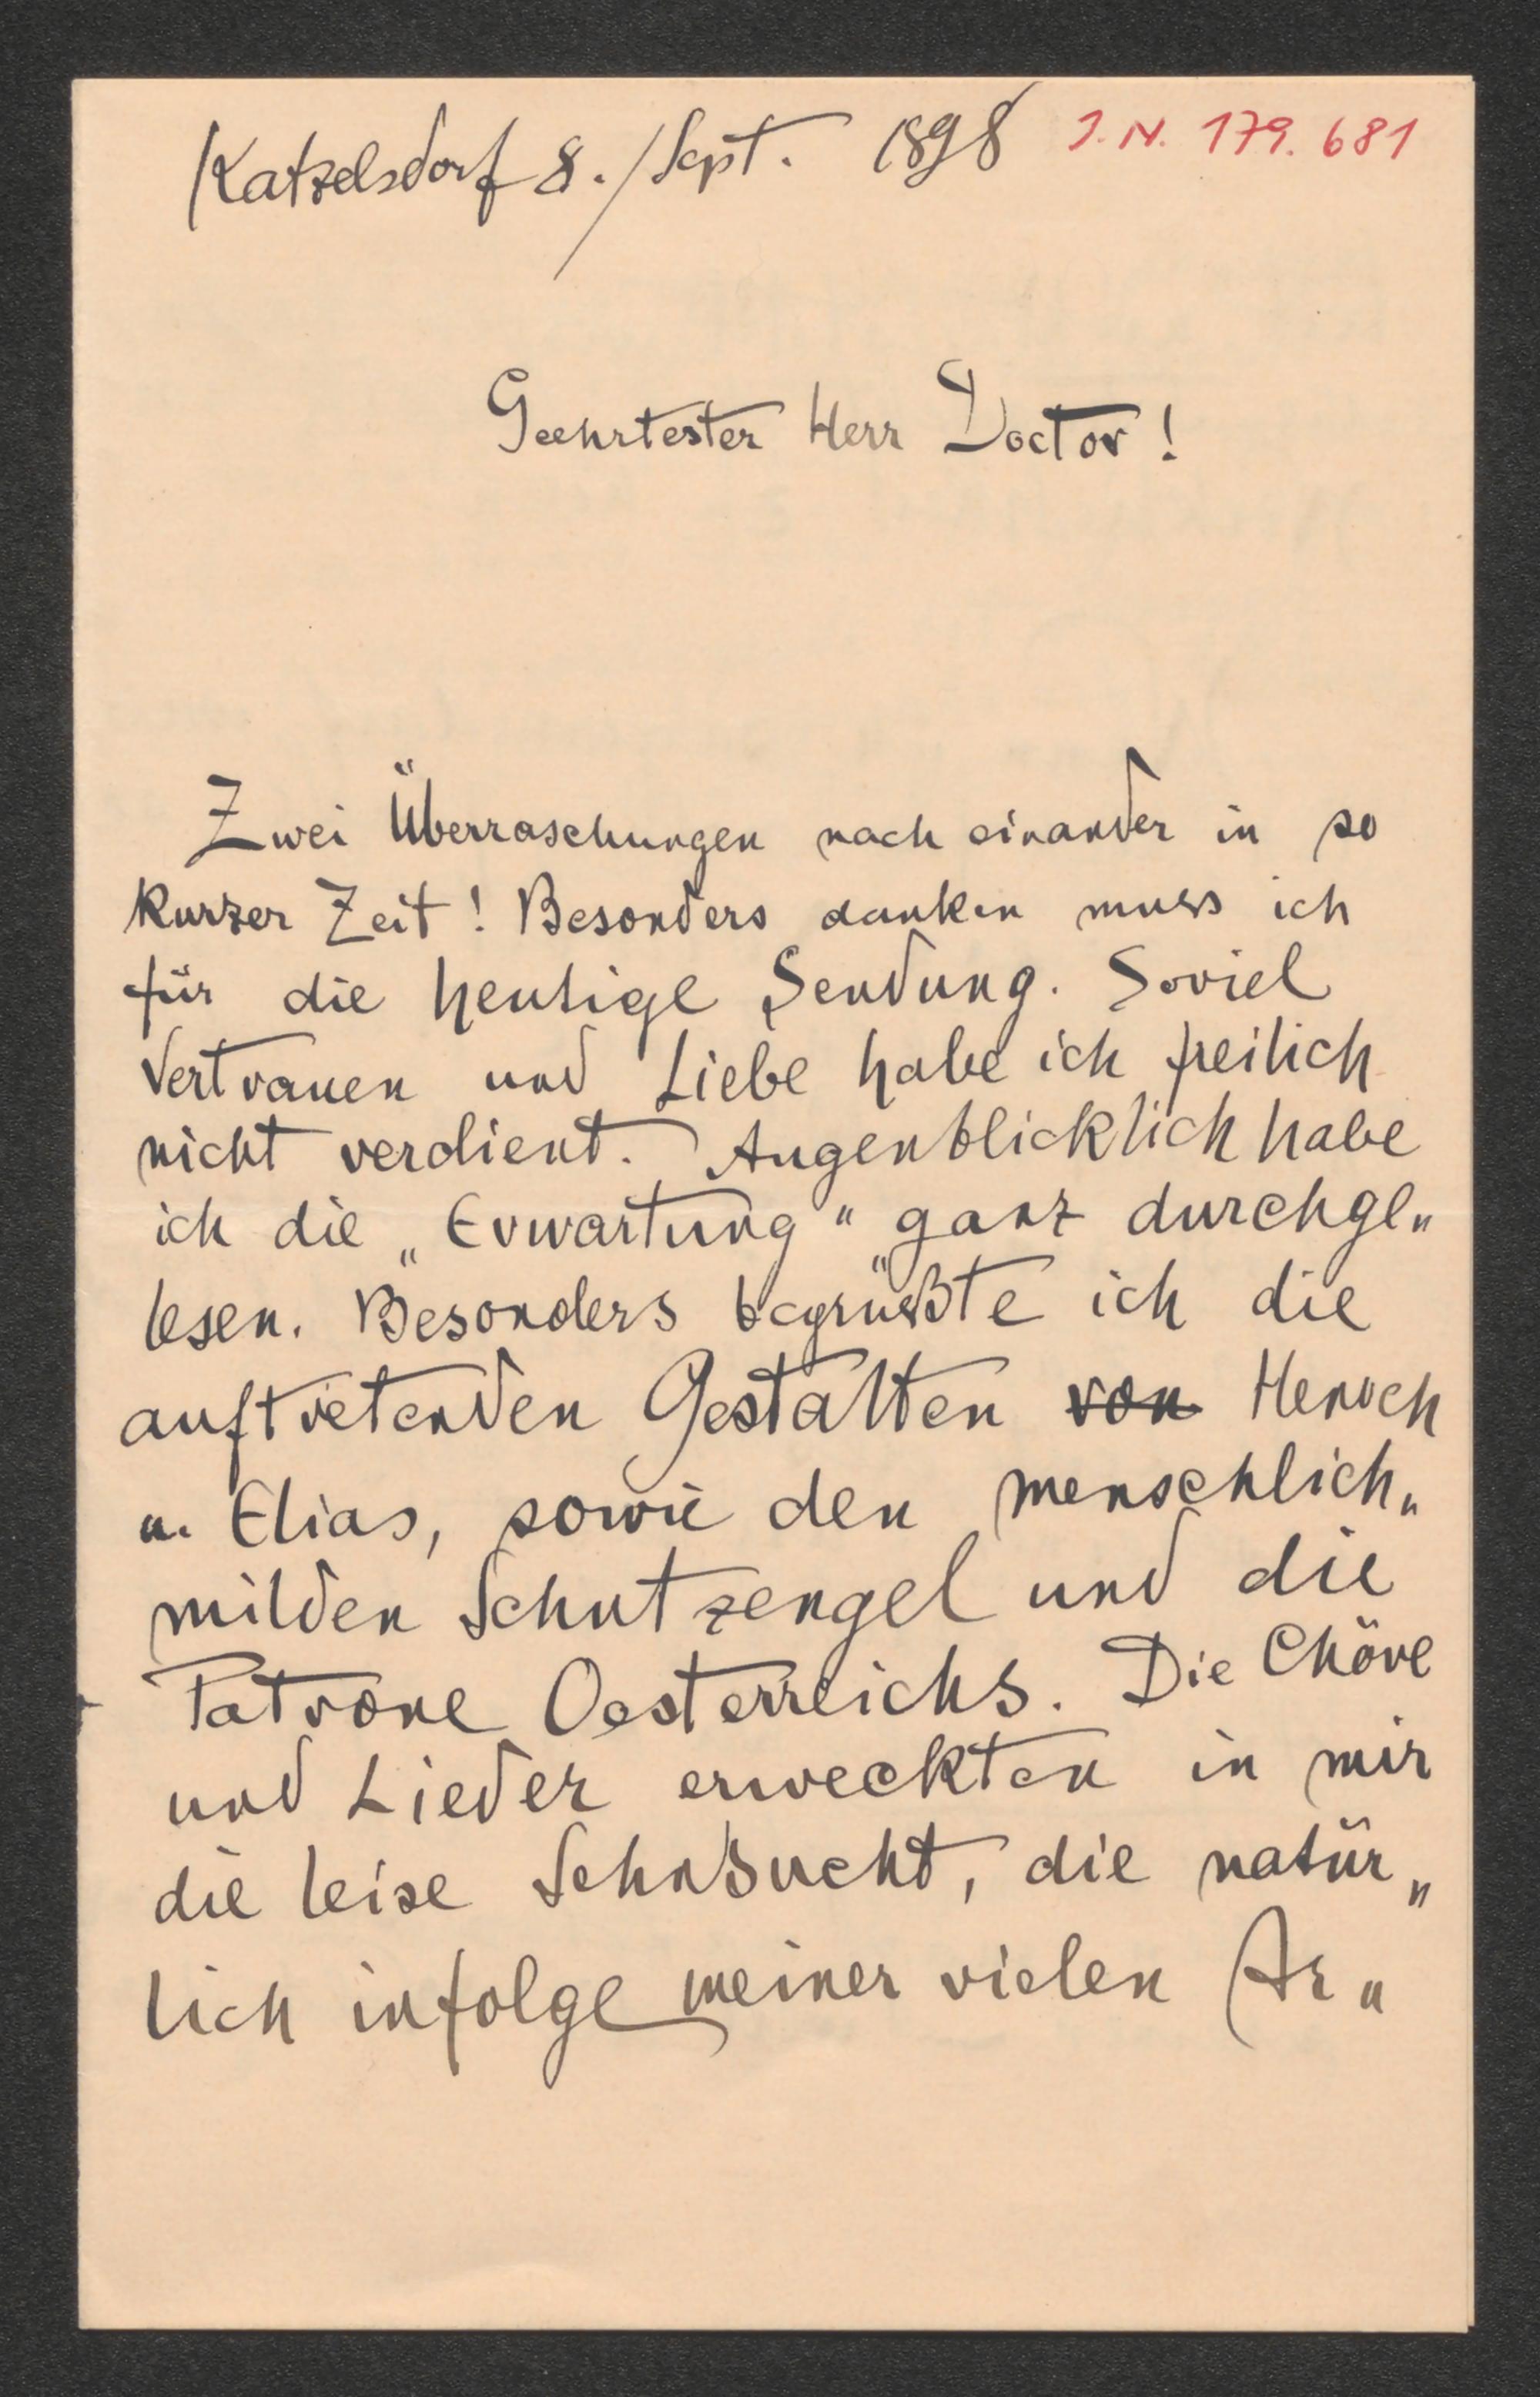 Katzelsdorf 8./Sept. 1898 J.N. 179.681
Geehrtester Herr Doctor!
Zwei Überraschungen nach einander in so
kurzer Zeit! Besonders danken muss ich
für die heutige Sendung. Soviel
Vertrauen und Liebe habe ich freilich
nicht verdient. Augenblicklich habe
ich die „Erwartung" ganz durchge„
lesen. Besonders begrüßte ich die
auftretenden Gestalten von Henoch
u. Elias, sowie den menschlich„
milden Schutzengel und die
Patrone Oesterreichs. Die Chöre
und Lieder erweckten in mir
die leise Sehnsucht, die natür„
lich infolge meiner vielen Ar„